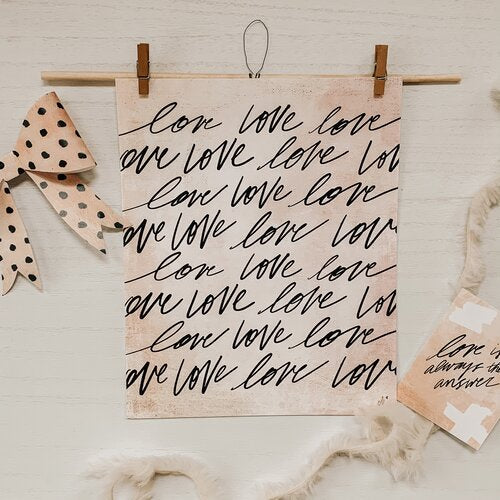 love love love
ove love love lov
love love love
ove love love lov
love love love
ove love love lov
love love love
ove love love lov
love is
always the
answer